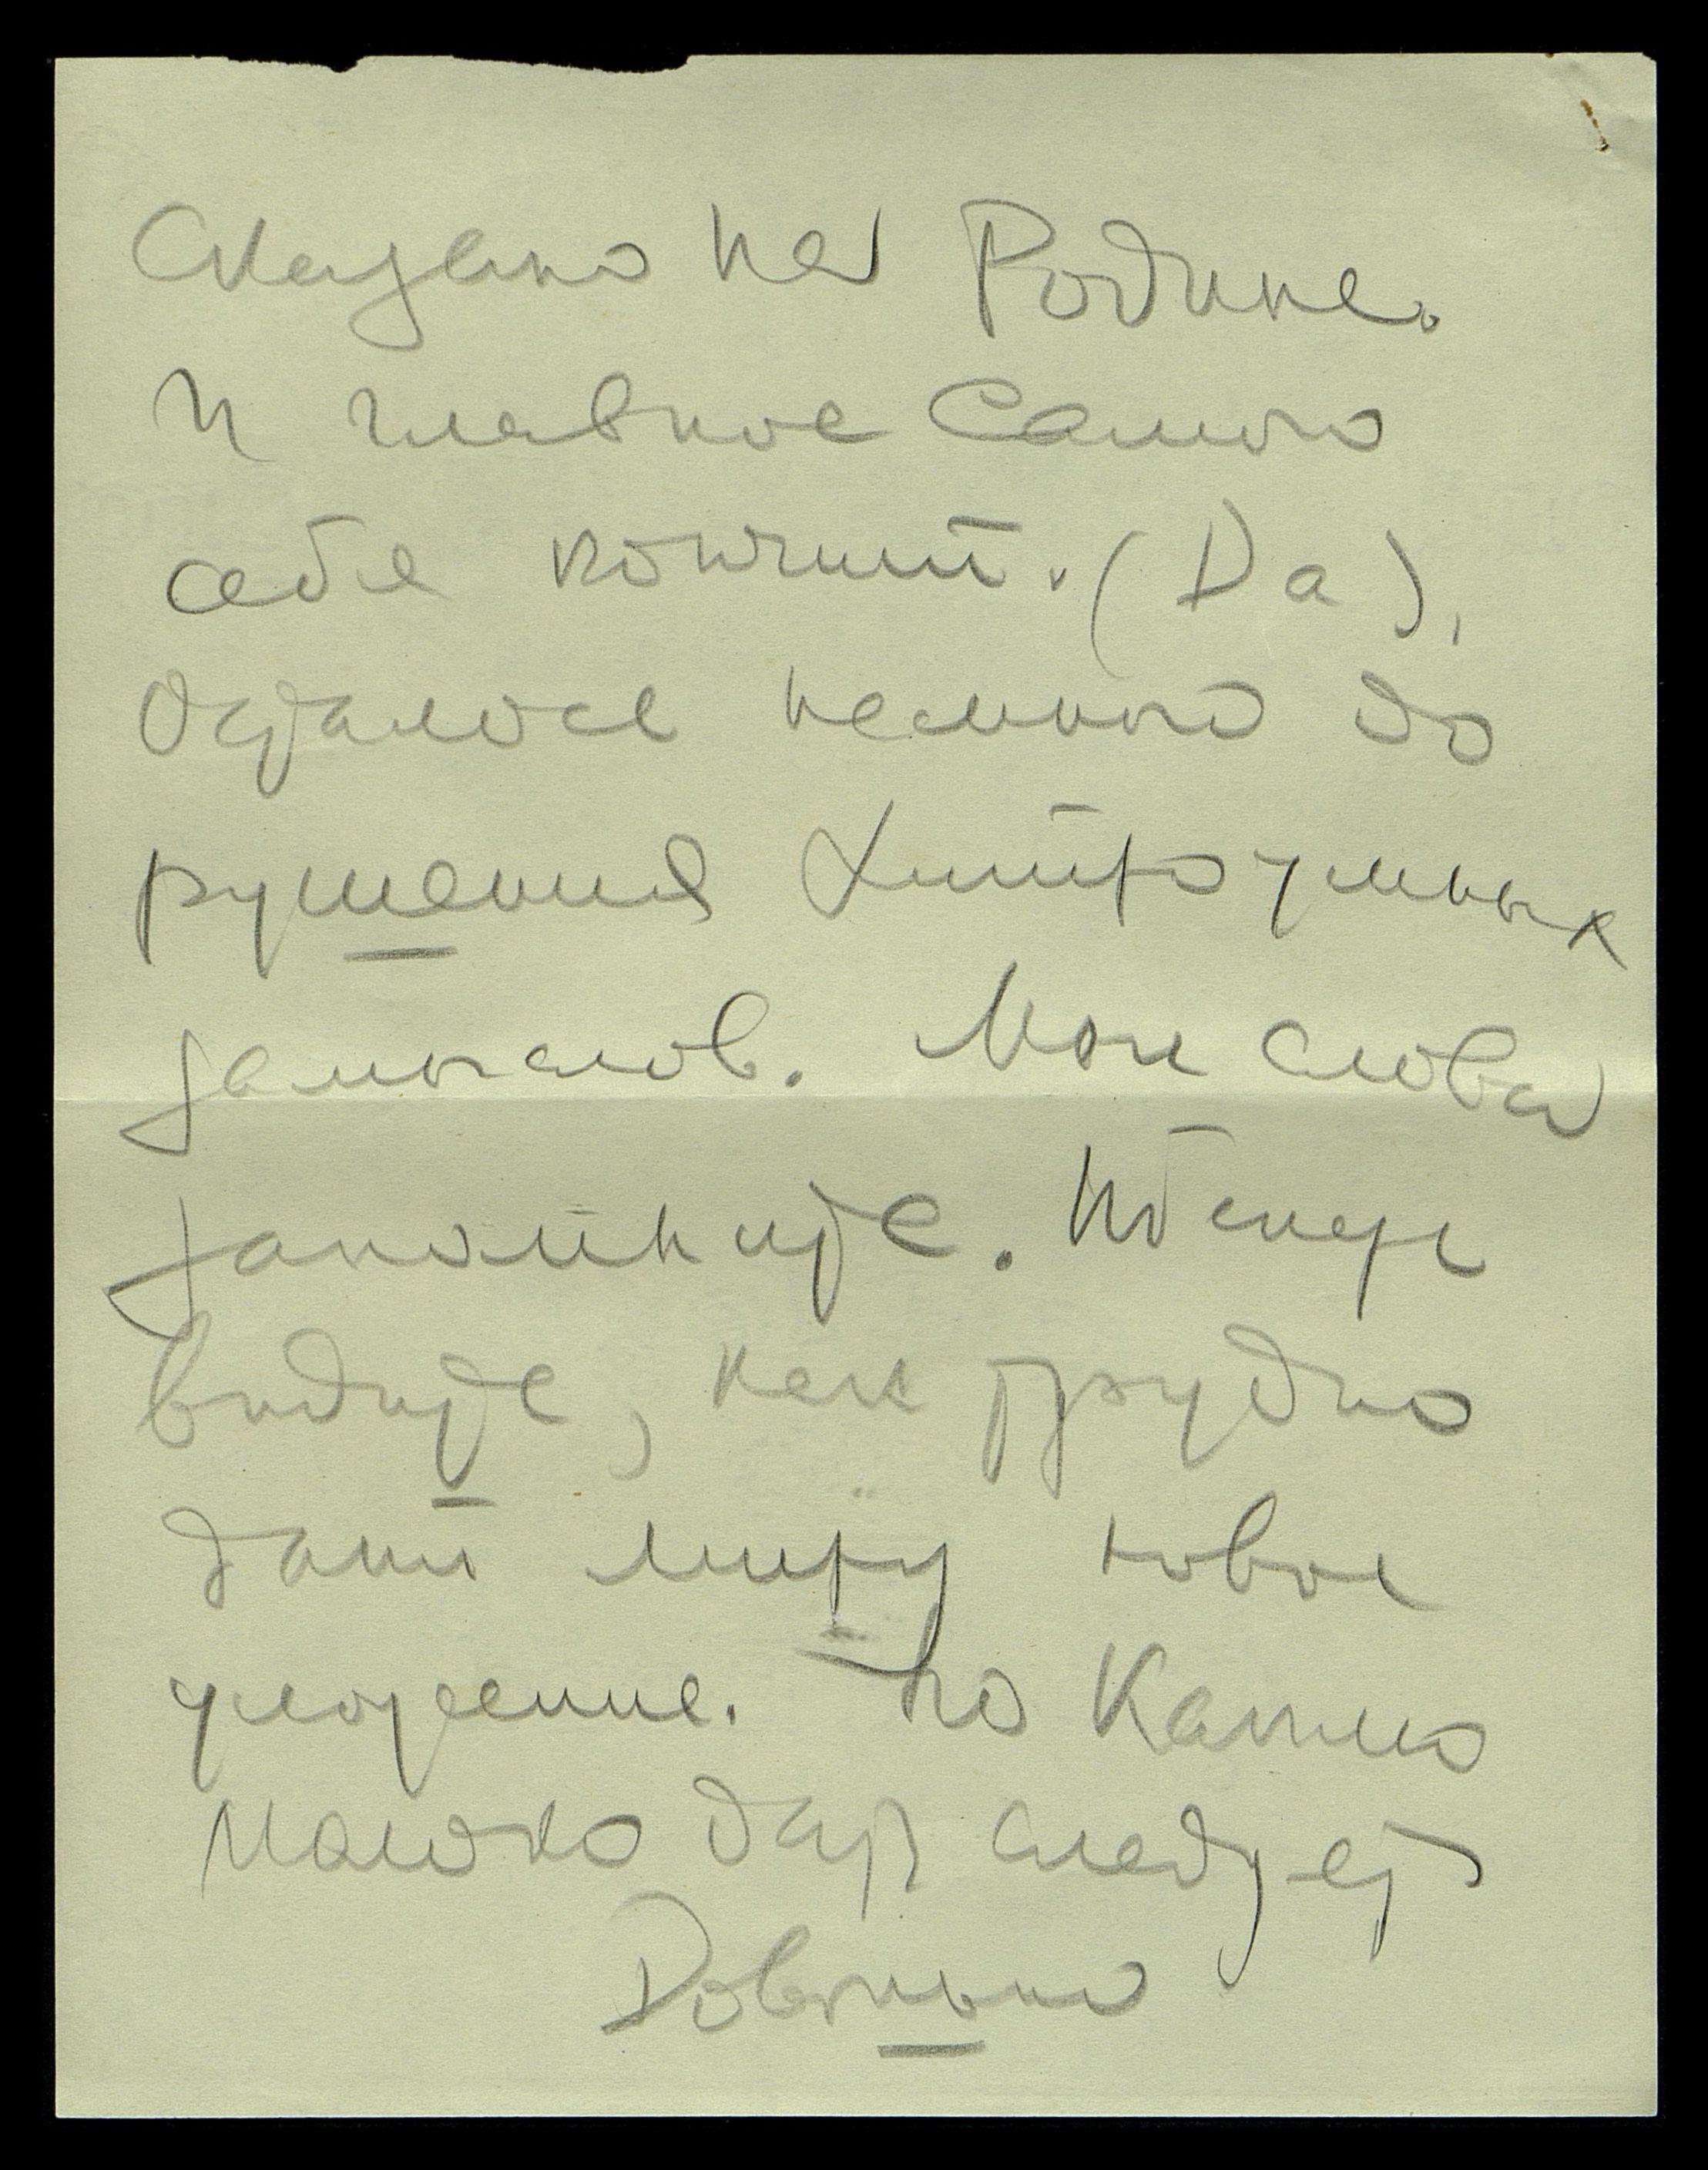 Сказано на Родине.
И главное самого
себя кончит. (Да),
Осталось немного до
рушения хитроумных
замыслов. Мои слова
запомните. И теперь
видите, как трудно
дать миру новое
уложение. Но Камню
Моего дар следует
Довольно